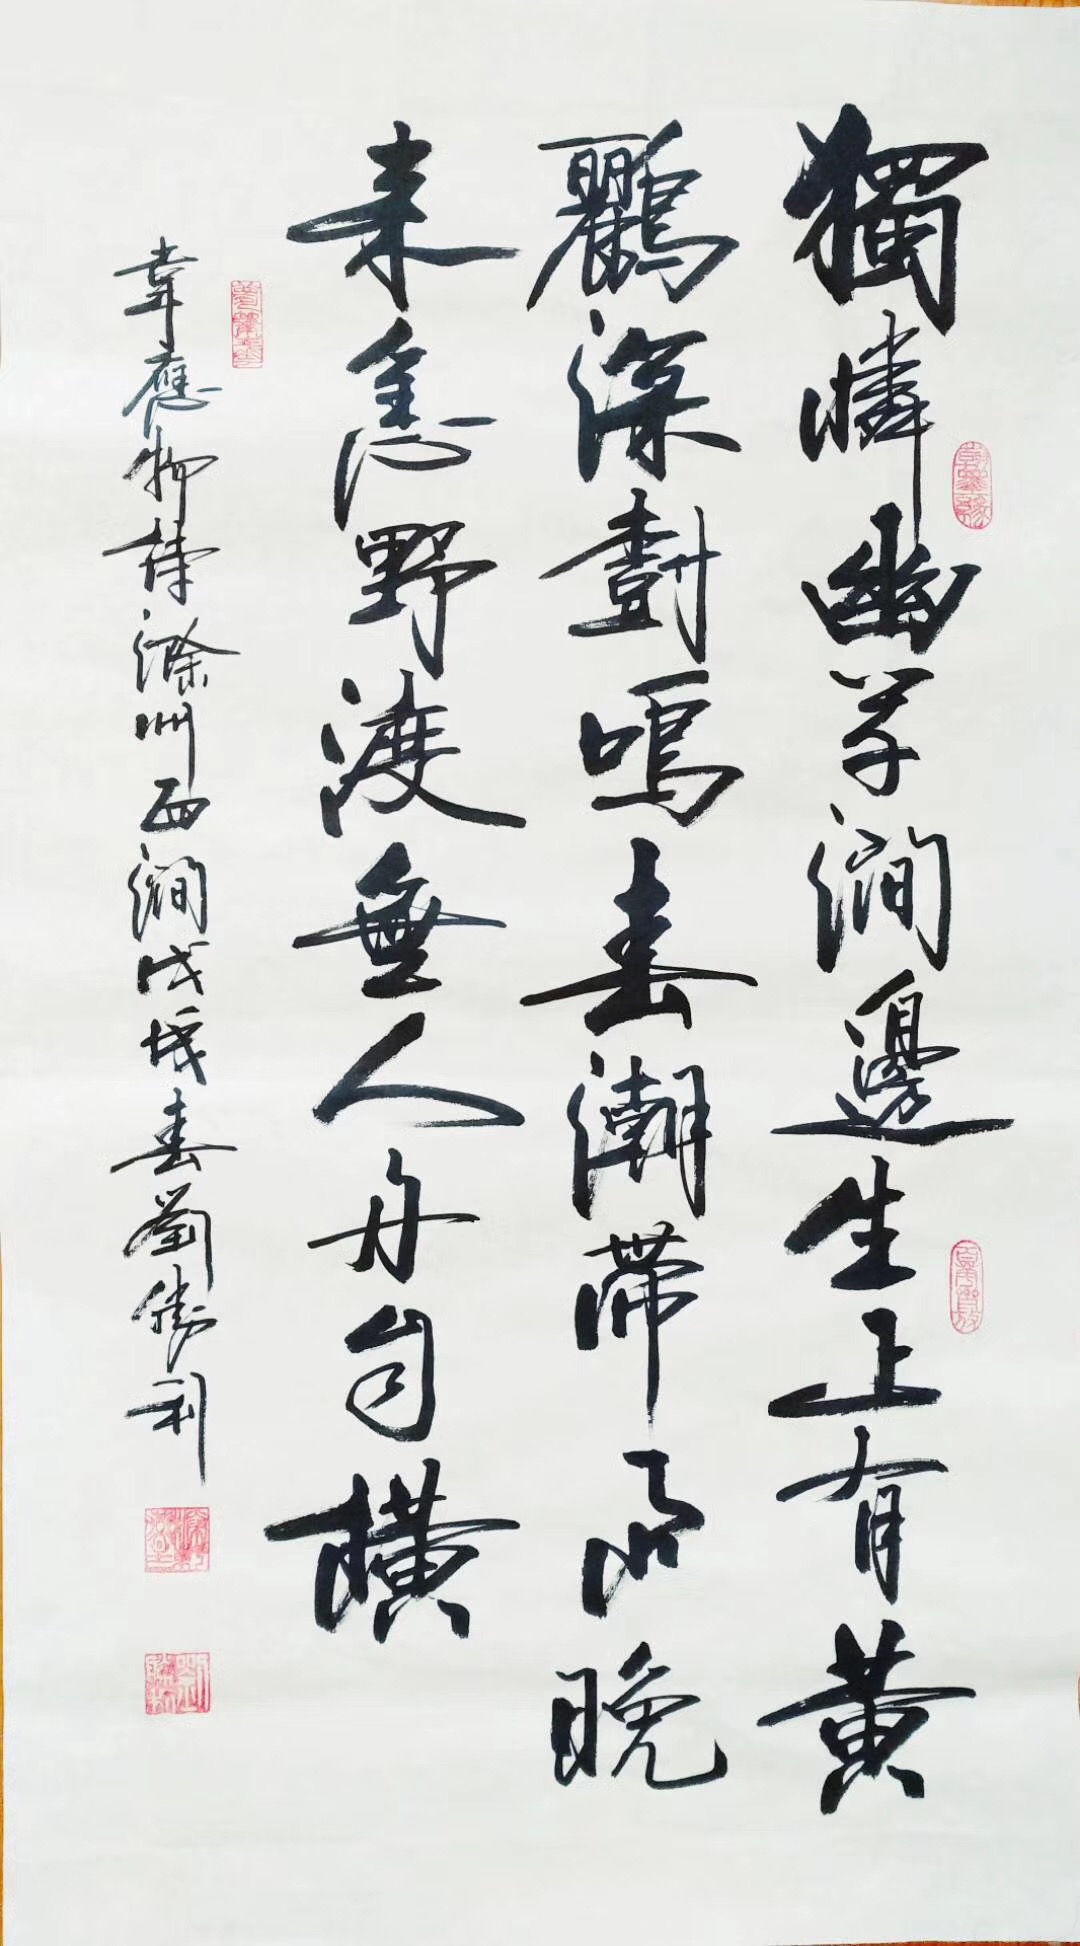 獨憐幽草澗邊生上有黃
鸝深樹鳴春潮帶雨晚
来急野渡無人舟自橫
韋應物詩滁州西澗戊戌春劉勝利